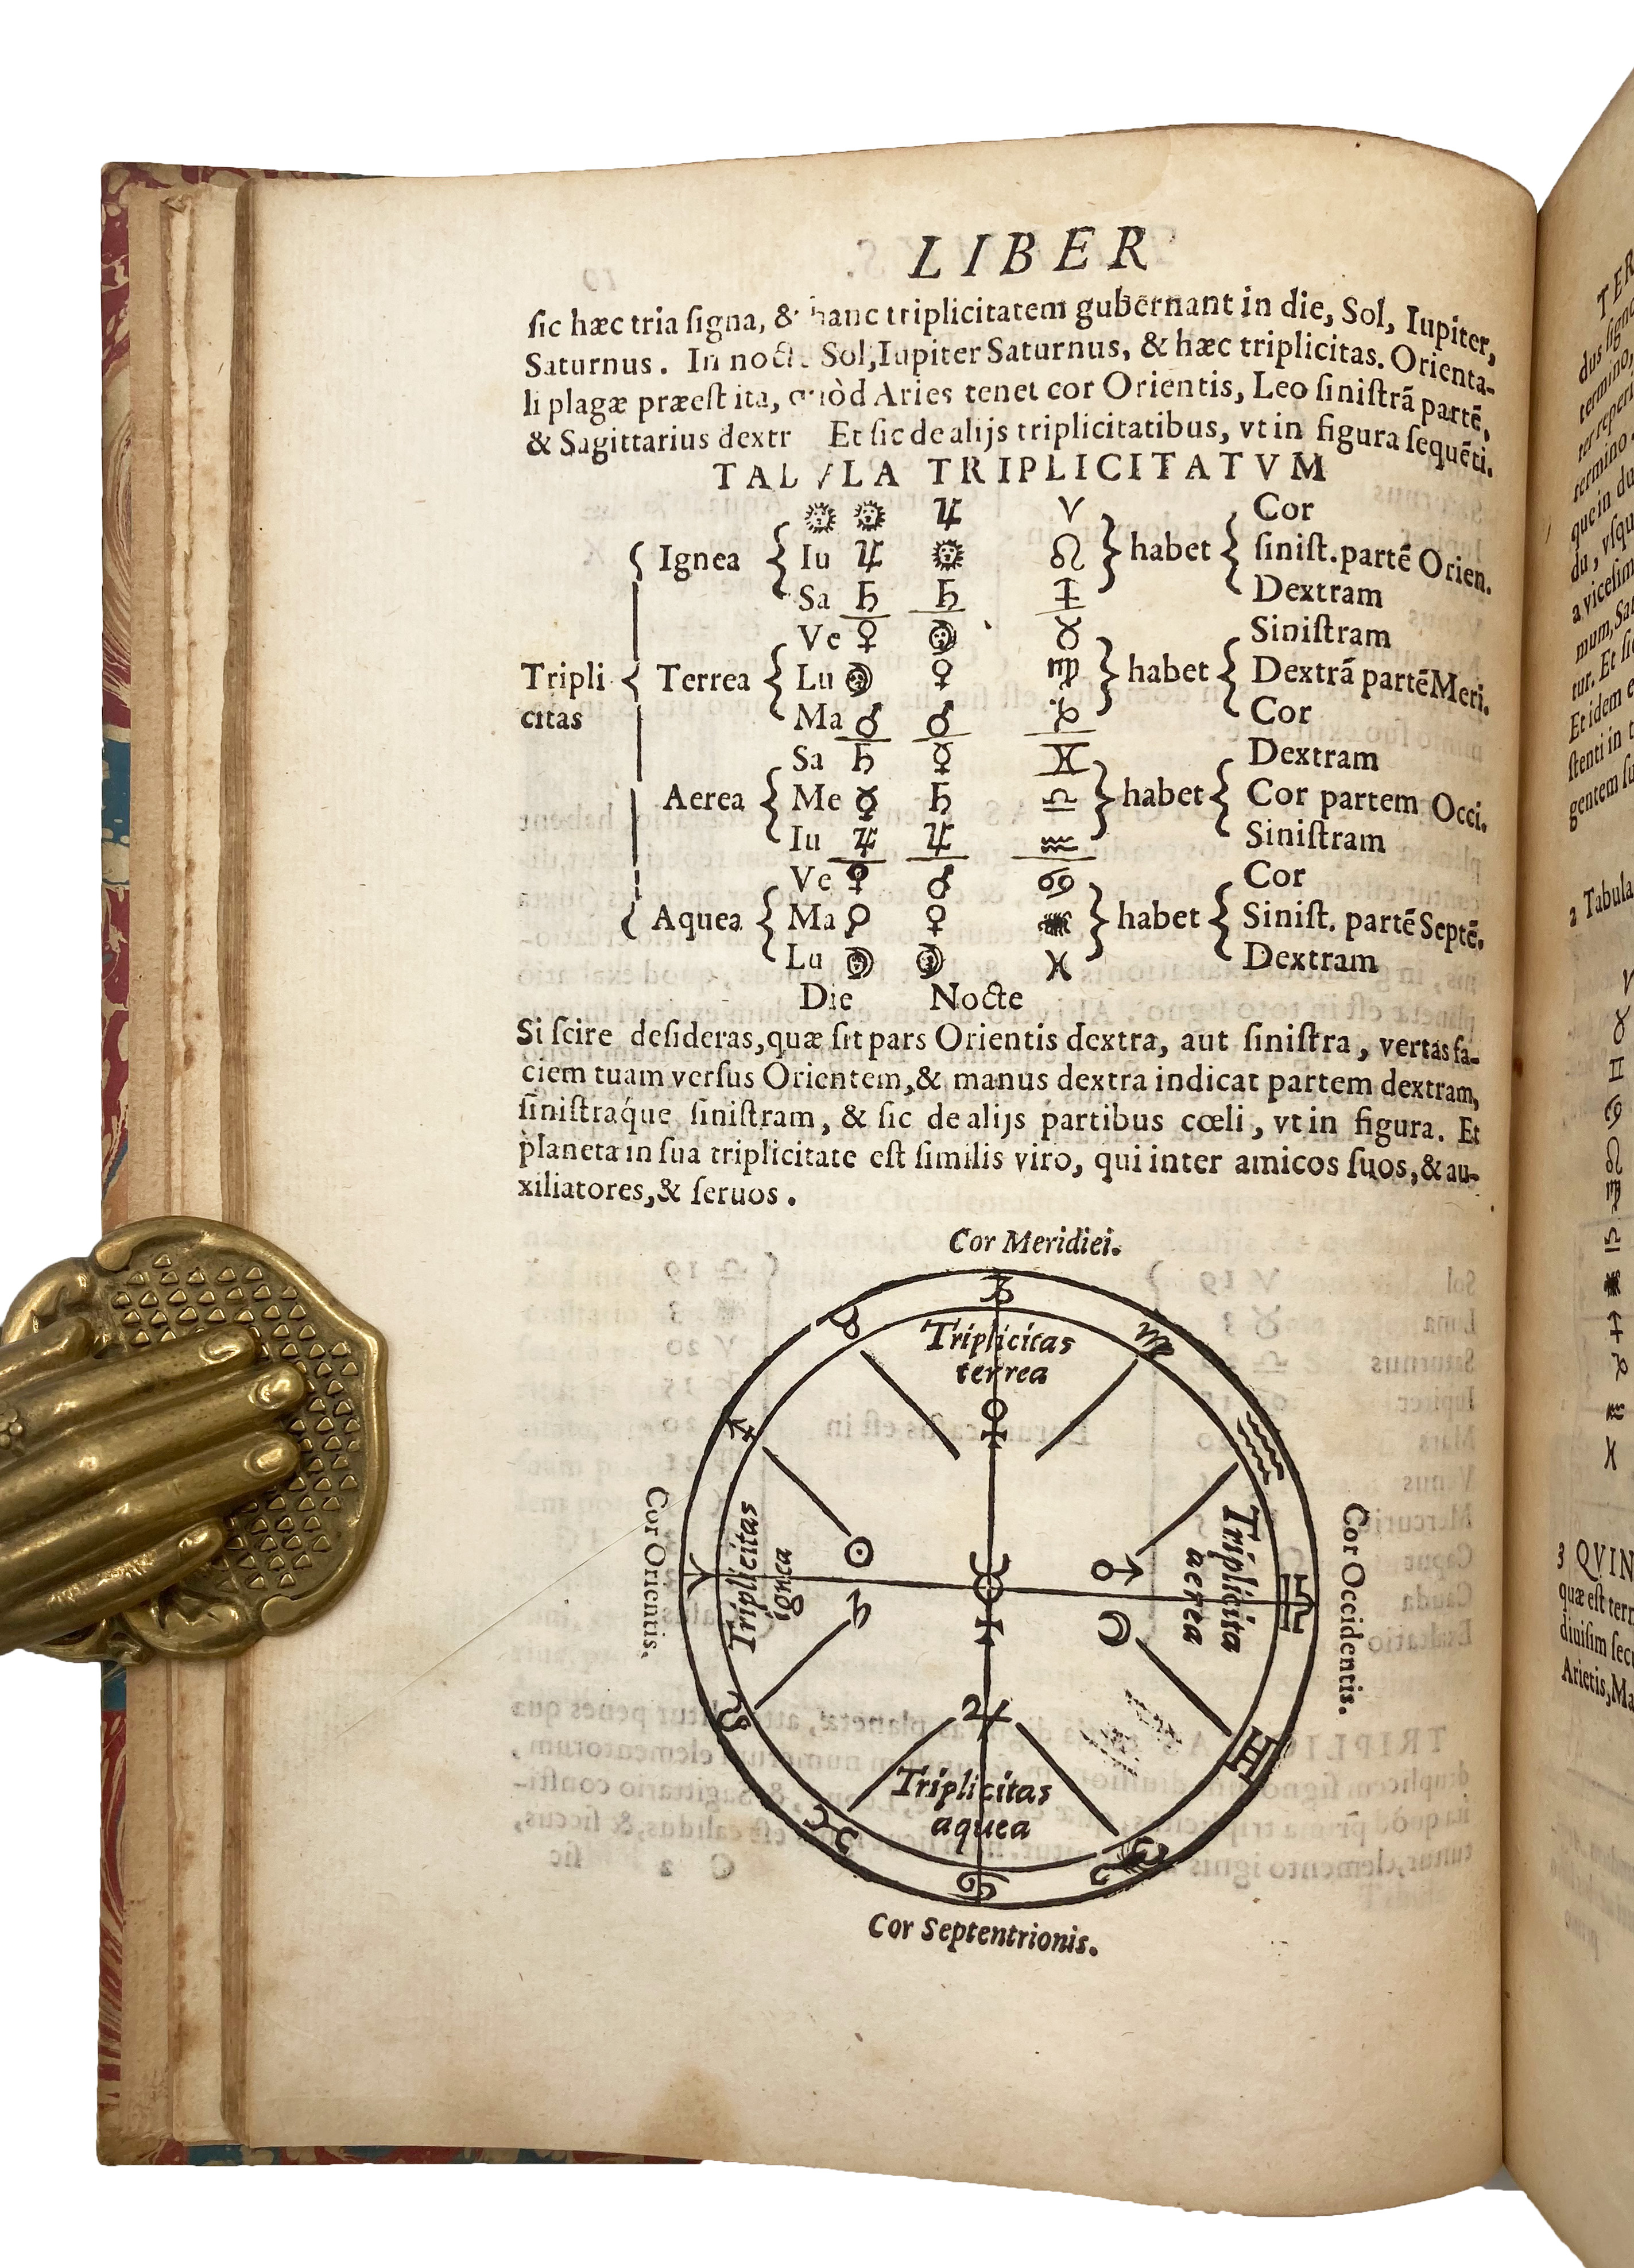 LIBER
sic hæc tria signa, & hanc triplicitatem gubernant in die, Sol, Iupiter,
Saturnus. In noct. Sol, Iupiter Saturnus, & hæc triplicitas. Orienta-
li plagæ præest ita, quòd Aries tenet cor Orientis, Leo sinistrā partē,
& Sagittarius dextr Et sic de alijs triplicitatibus, vt in figura sequēti.
TABVLA TRIPLICITATVM
☉ ☉ ♃ ♈ Cor
Ignea Iu ♃ ☉ ♌ habet sinist. partē Orien.
Sa ♄ ♄ ♐ Dextram
Ve ♀ ☽ ♉ Sinistram
Tripli Terrea Lu ☽ ♀ ♍ habet Dextrā partē Meri.
citas Ma ♂ ♂ ♑ Cor
Sa ♄ ☿ ♓ Dextram
Aerea Me ☿ ♄ ♎ habet Cor partem Occi.
Iu ♃ ♃ ♒ Sinistram
Ve ♀ ♂ ♋ Cor
Aquea Ma ♂ ♀ ♏ habet Sinist. partē Septē.
Lu ☽ ☽ ♓ Dextram
Die Nocte
Si scire desideras, quæ sit pars Orientis dextra, aut sinistra, vertas fa-
ciem tuam versus Orientem, & manus dextra indicat partem dextram,
sinistraque sinistram, & sic de alijs partibus cœli, vt in figura. Et
planeta in sua triplicitate est similis viro, qui inter amicos suos, & au-
xiliatores, & seruos.
Cor Meridiei.
Triplicitas
terrea
Cor Orientis.
Triplicitas
ignea
Triplicita
aerea
Cor Occidentis.
Triplicitas
aquea
Cor Septentrionis.
TER
dus signo
termino,
ter reperi
termino
que in du
du, vsqu
a vicesim
mum, Sat
tur. Et sic
Et idem e
stenti in t
gentem su
2 Tabula
♈
♉
♊
♋
♌
♍
♎
♏
♐
♑
♒
♓
3 QVIN
quæ est tern
diuisim secu
Arietis, Ma